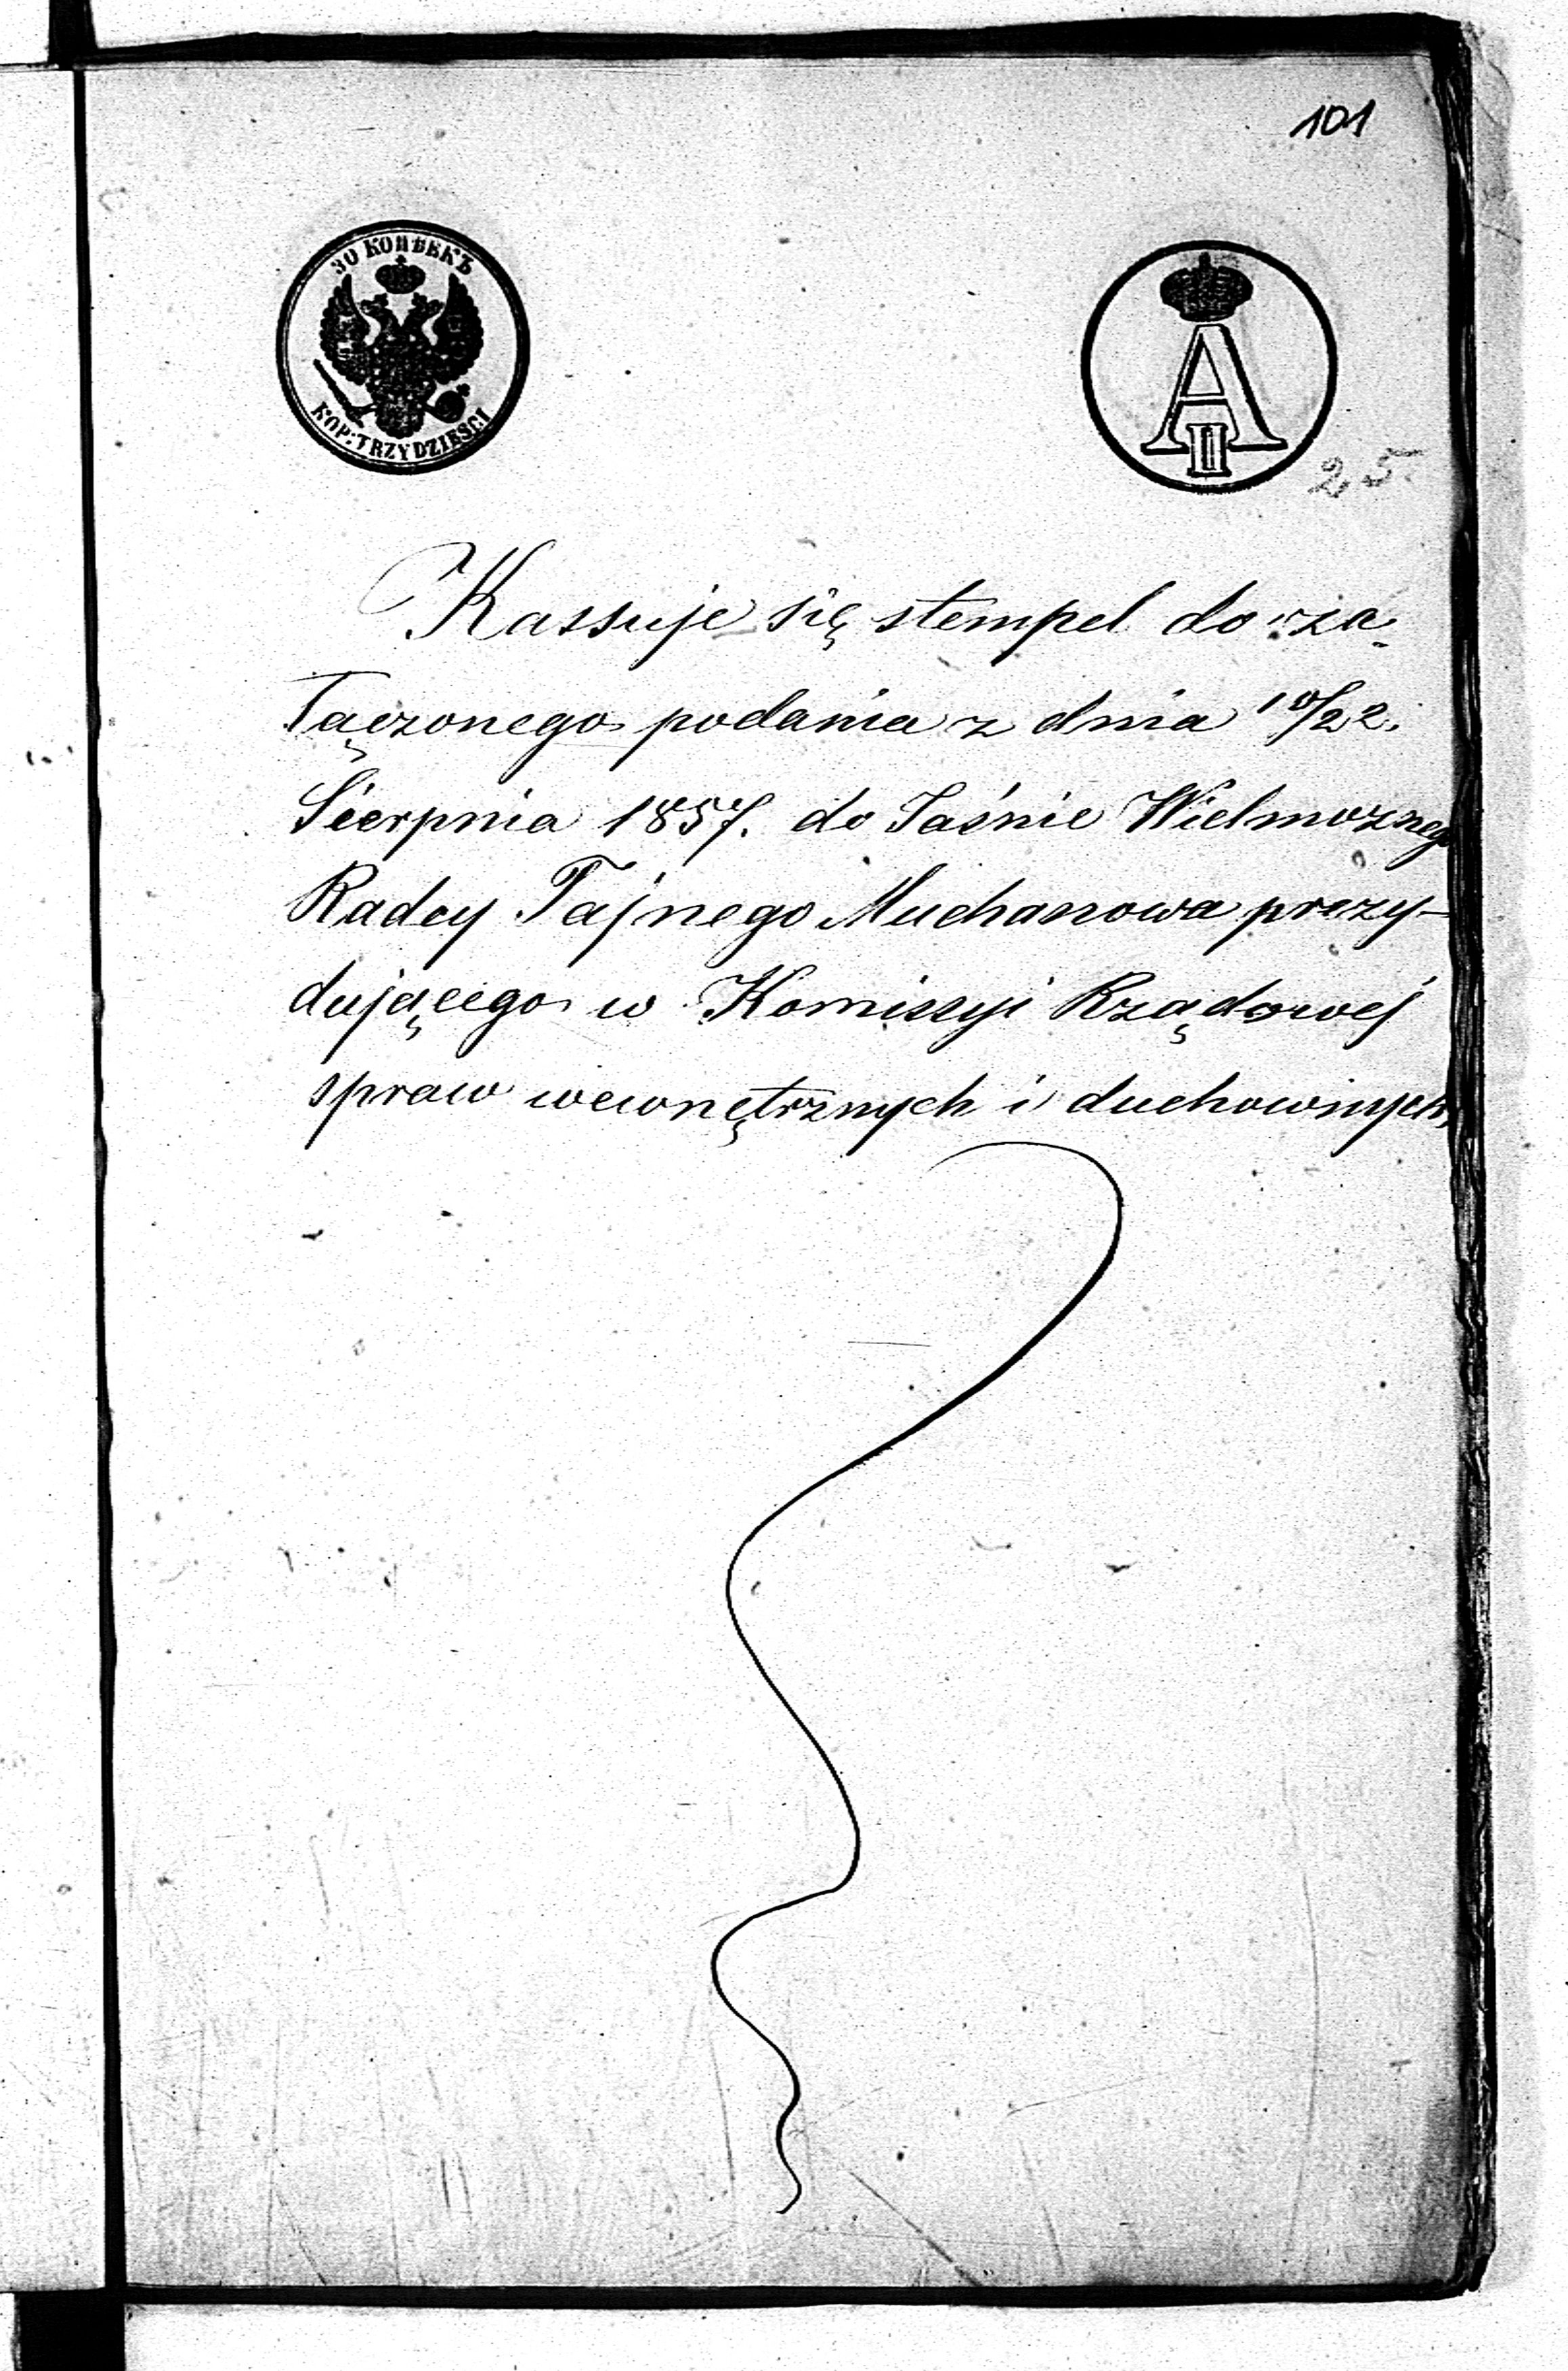 101
30 КОПѢЕКЪ
KOP: TRZYDZIEŚCI
A
II
25.
Kassuje się stempel do za-
łączonego podania z dnia 10/22.
Sierpnia 1857. do Jaśnie Wielmożnego
Radcy Tajnego Muchanowa prezy-
dującego w Komissyi Rządowej
spraw wewnętrznych i duchownych,